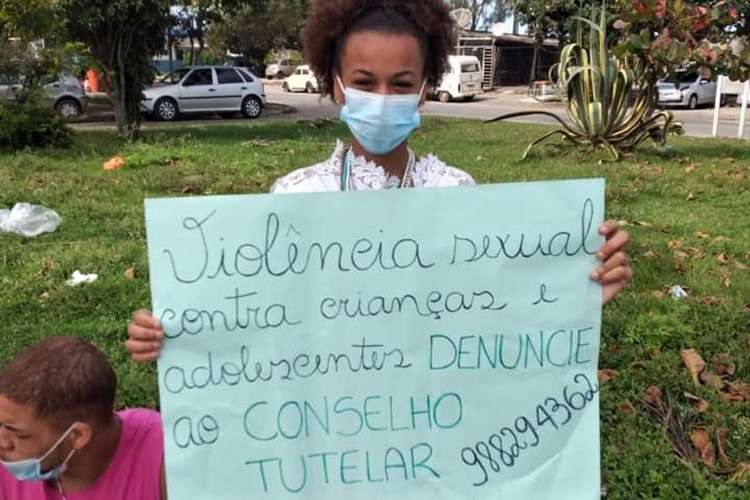 Violência sexual
contra crianças e
adolescentes DENUNCIE
ao CONSELHO
TUTELAR 988294362